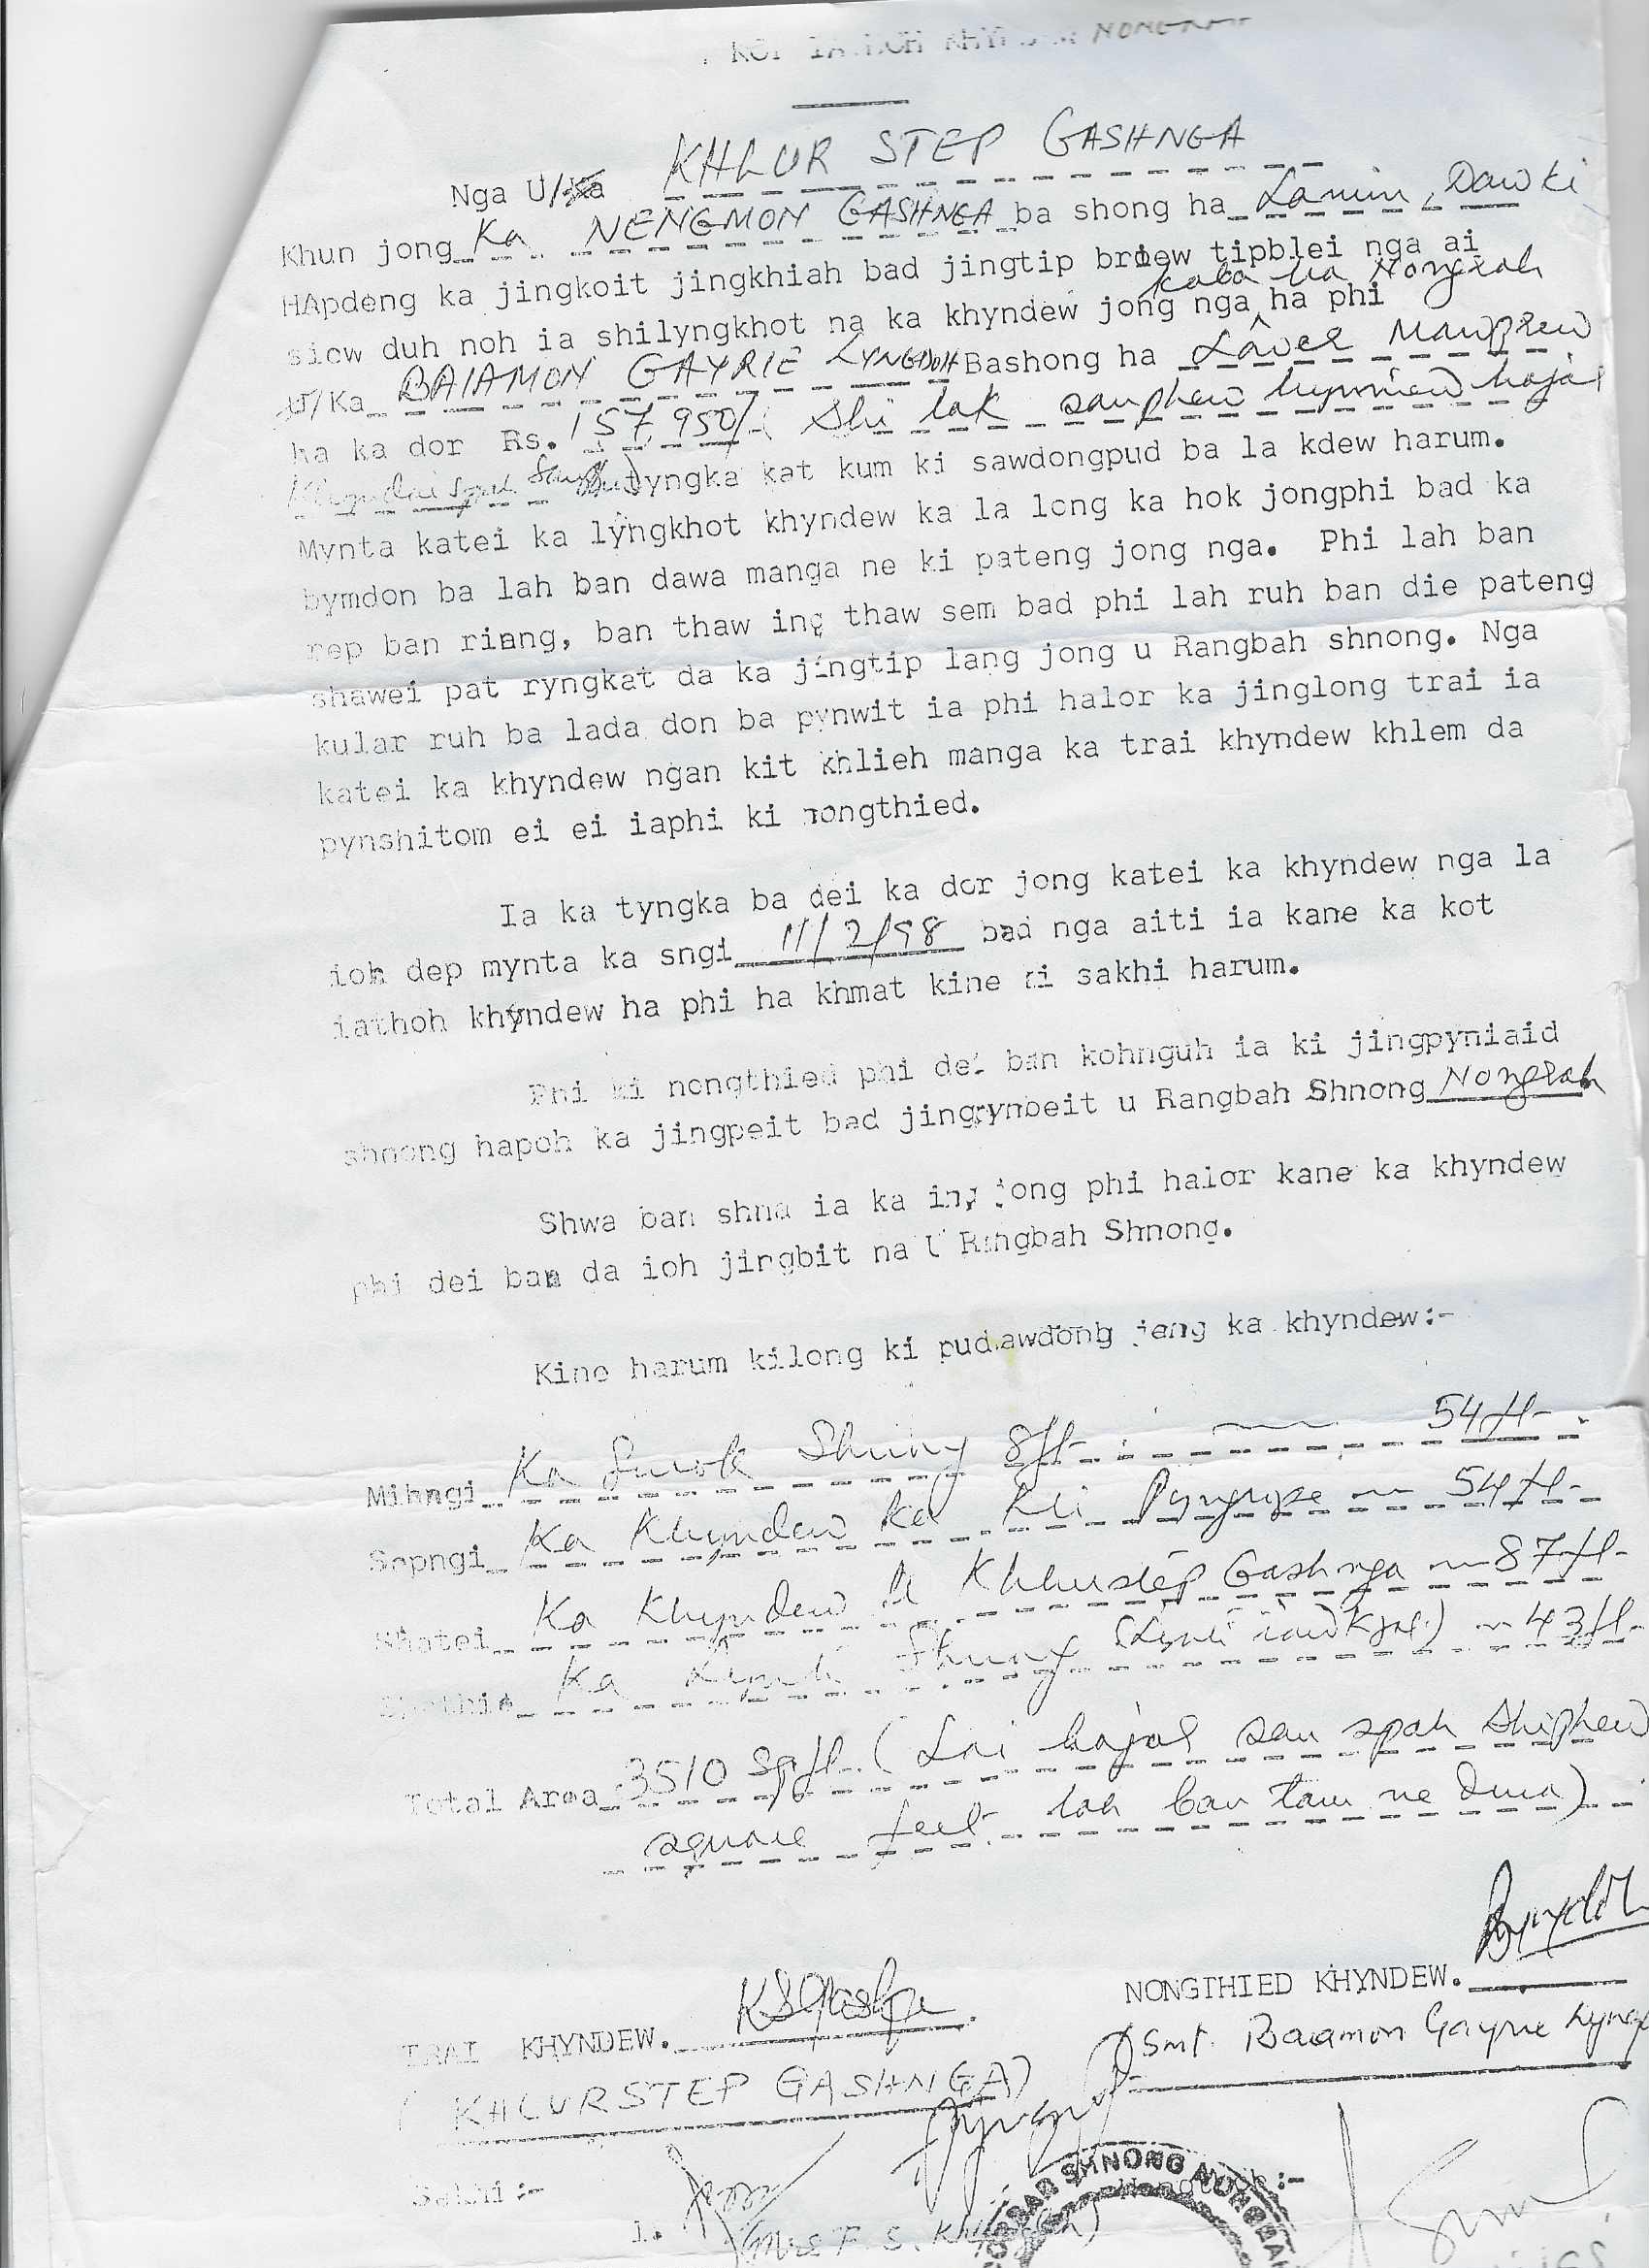 KOT IATHOH KHYNDEW NONGRAH
Nga U/Ka KHLUR STEP GASHNGA
Khun jong Ka NENGMON GASHNGA ba shong ha Lamin, Dawki
HApdeng ka jingkoit jingkhiah bad jingtip briew tipblei nga ai
siow duh noh ia shilyngkhot na ka khyndew jong nga kaba ha Nongrah ha phi
U/Ka BAIAMON GAYRIE LYNGDOH Bashong ha Lawer Mawprew
ha ka dor Rs. 157,950/- ( Shi lak sanphew hynniew hajar
khyndai spah sanphew) tyngka kat kum ki sawdongpud ba la kdew harum.
Mynta katei ka lyngkhot khyndew ka la long ka hok jongphi bad ka
bymdon ba lah ban dawa manga ne ki pateng jong nga. Phi lah ban
rep ban riang, ban thaw ing thaw sem bad phi lah ruh ban die pateng
shawei pat ryngkat da ka jingtip lang jong u Rangbah shnong. Nga
kular ruh ba lada don ba pynwit ia phi halor ka jinglong trai ia
katei ka khyndew ngan kit khlieh manga ka trai khyndew khlem da
pynshitom ei ei iaphi ki nongthied.
Ia ka tyngka ba dei ka dor jong katei ka khyndew nga la
ioh dep mynta ka sngi 11/2/98 bad nga aiti ia kane ka kot
iathoh khyndew ha phi ha khmat kine ki sakhi harum.
Phi ki nongthied phi dei ban kohnguh ia ki jingpyniaid
shnong hapoh ka jingpeit bad jingpynbeit u Rangbah Shnong Nongrah
Shwa ban shna ia ka ing jong phi halor kane ka khyndew
phi dei ban da ioh jingbit na U Rangbah Shnong.
Kine harum kilong ki pudsawdong jong ka khyndew:-
Mihngi Ka Surok Shnong 8ft 54ft
Sepngi Ka Khyndew ka Kli Pyngrope 54ft
Shatei Ka Khyndew U Khlurstep Gashnga 87ft
Shathie Ka Lynti Shnong 43ft
Total Area 3510 Sqft (Lai hajar san spah shiphew
square feet lah ban tam ne duna)
NONGTHIED KHYNDEW.
TRAI KHYNDEW.
(Smt. Baiamon Gayrie Lyngdoh
(KHLURSTEP GASHNGA)
Sakhi:-
1.
RANGBAH SHNONG NONGRAH